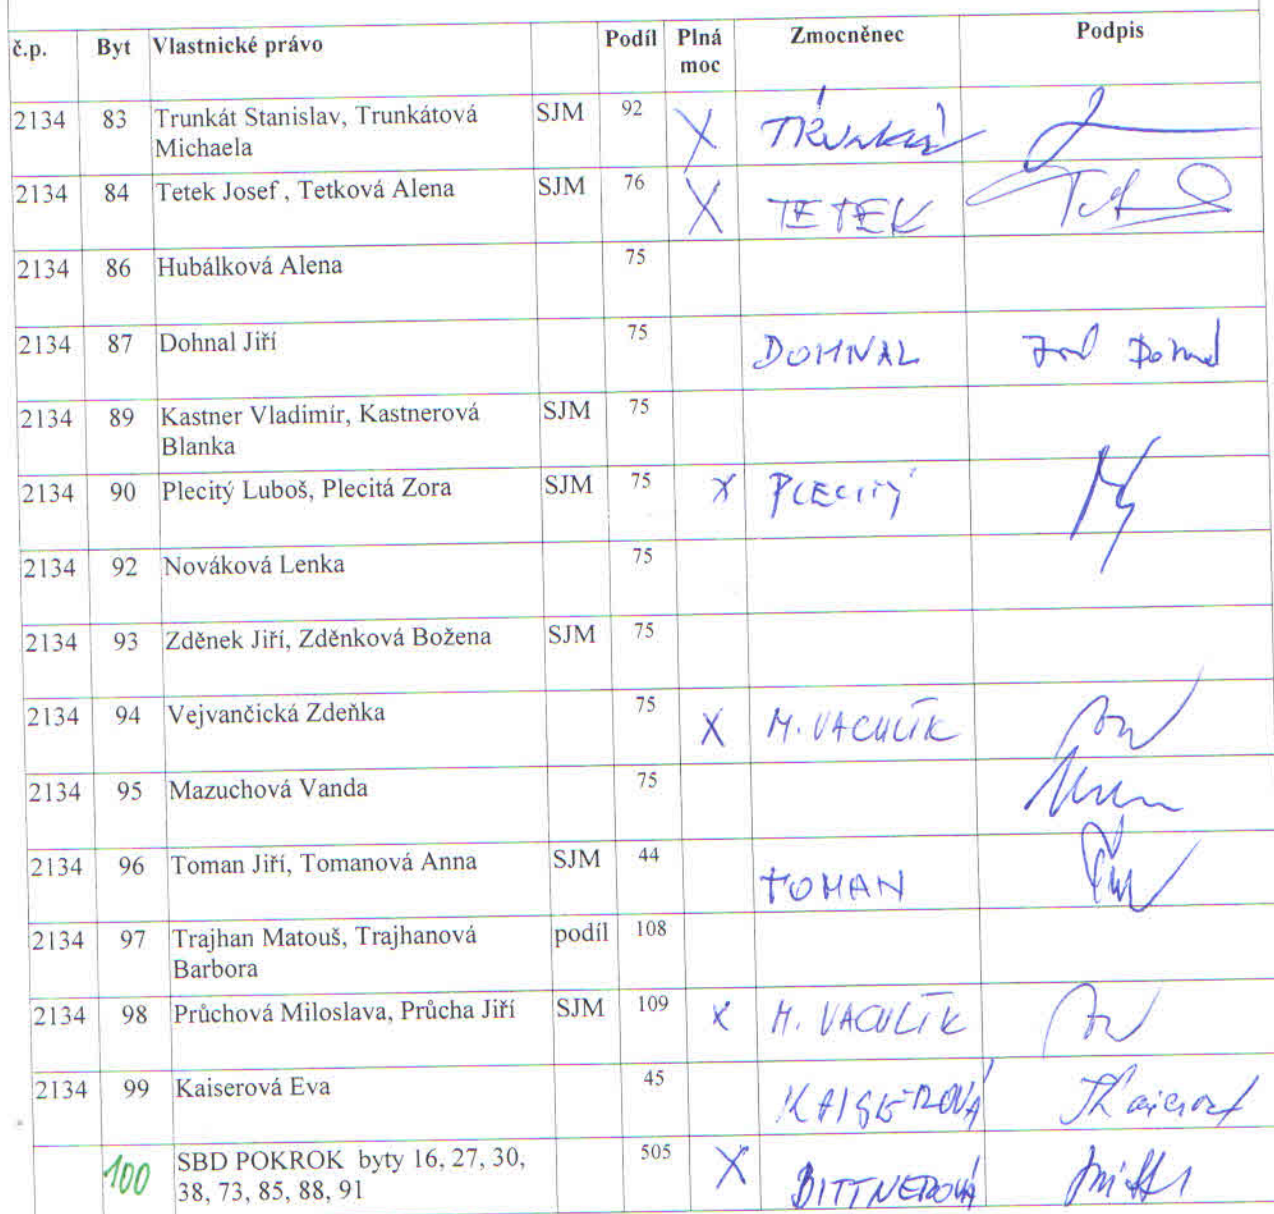 č.p. Byt Vlastnické právo Podíl Plná Zmocněnec Podpis
moc
2134 83 Trunkát Stanislav, Trunkátová SJM 92 X TRUNKÁT
Michaela
2134 84 Tetek Josef , Tetková Alena SJM 76 X TETEK
2134 86 Hubálková Alena 75
2134 87 Dohnal Jiří 75 DOHNAL
2134 89 Kastner Vladimír, Kastnerová SJM 75
Blanka
2134 90 Plecitý Luboš, Plecitá Zora SJM 75 X PLECITÝ
2134 92 Nováková Lenka 75
2134 93 Zděnek Jiří, Zděnková Božena SJM 75
2134 94 Vejvančická Zdeňka 75 X M. VACULÍK
2134 95 Mazuchová Vanda 75
2134 96 Toman Jiří, Tomanová Anna SJM 44 TOMAN
2134 97 Trajhan Matouš, Trajhanová podíl 108
Barbora
2134 98 Průchová Miloslava, Průcha Jiří SJM 109 X M. VACULÍK
2134 99 Kaiserová Eva 45 KAISEROVÁ
100 SBD POKROK byty 16, 27, 30, 505 X BITTNEROVÁ
38, 73, 85, 88, 91